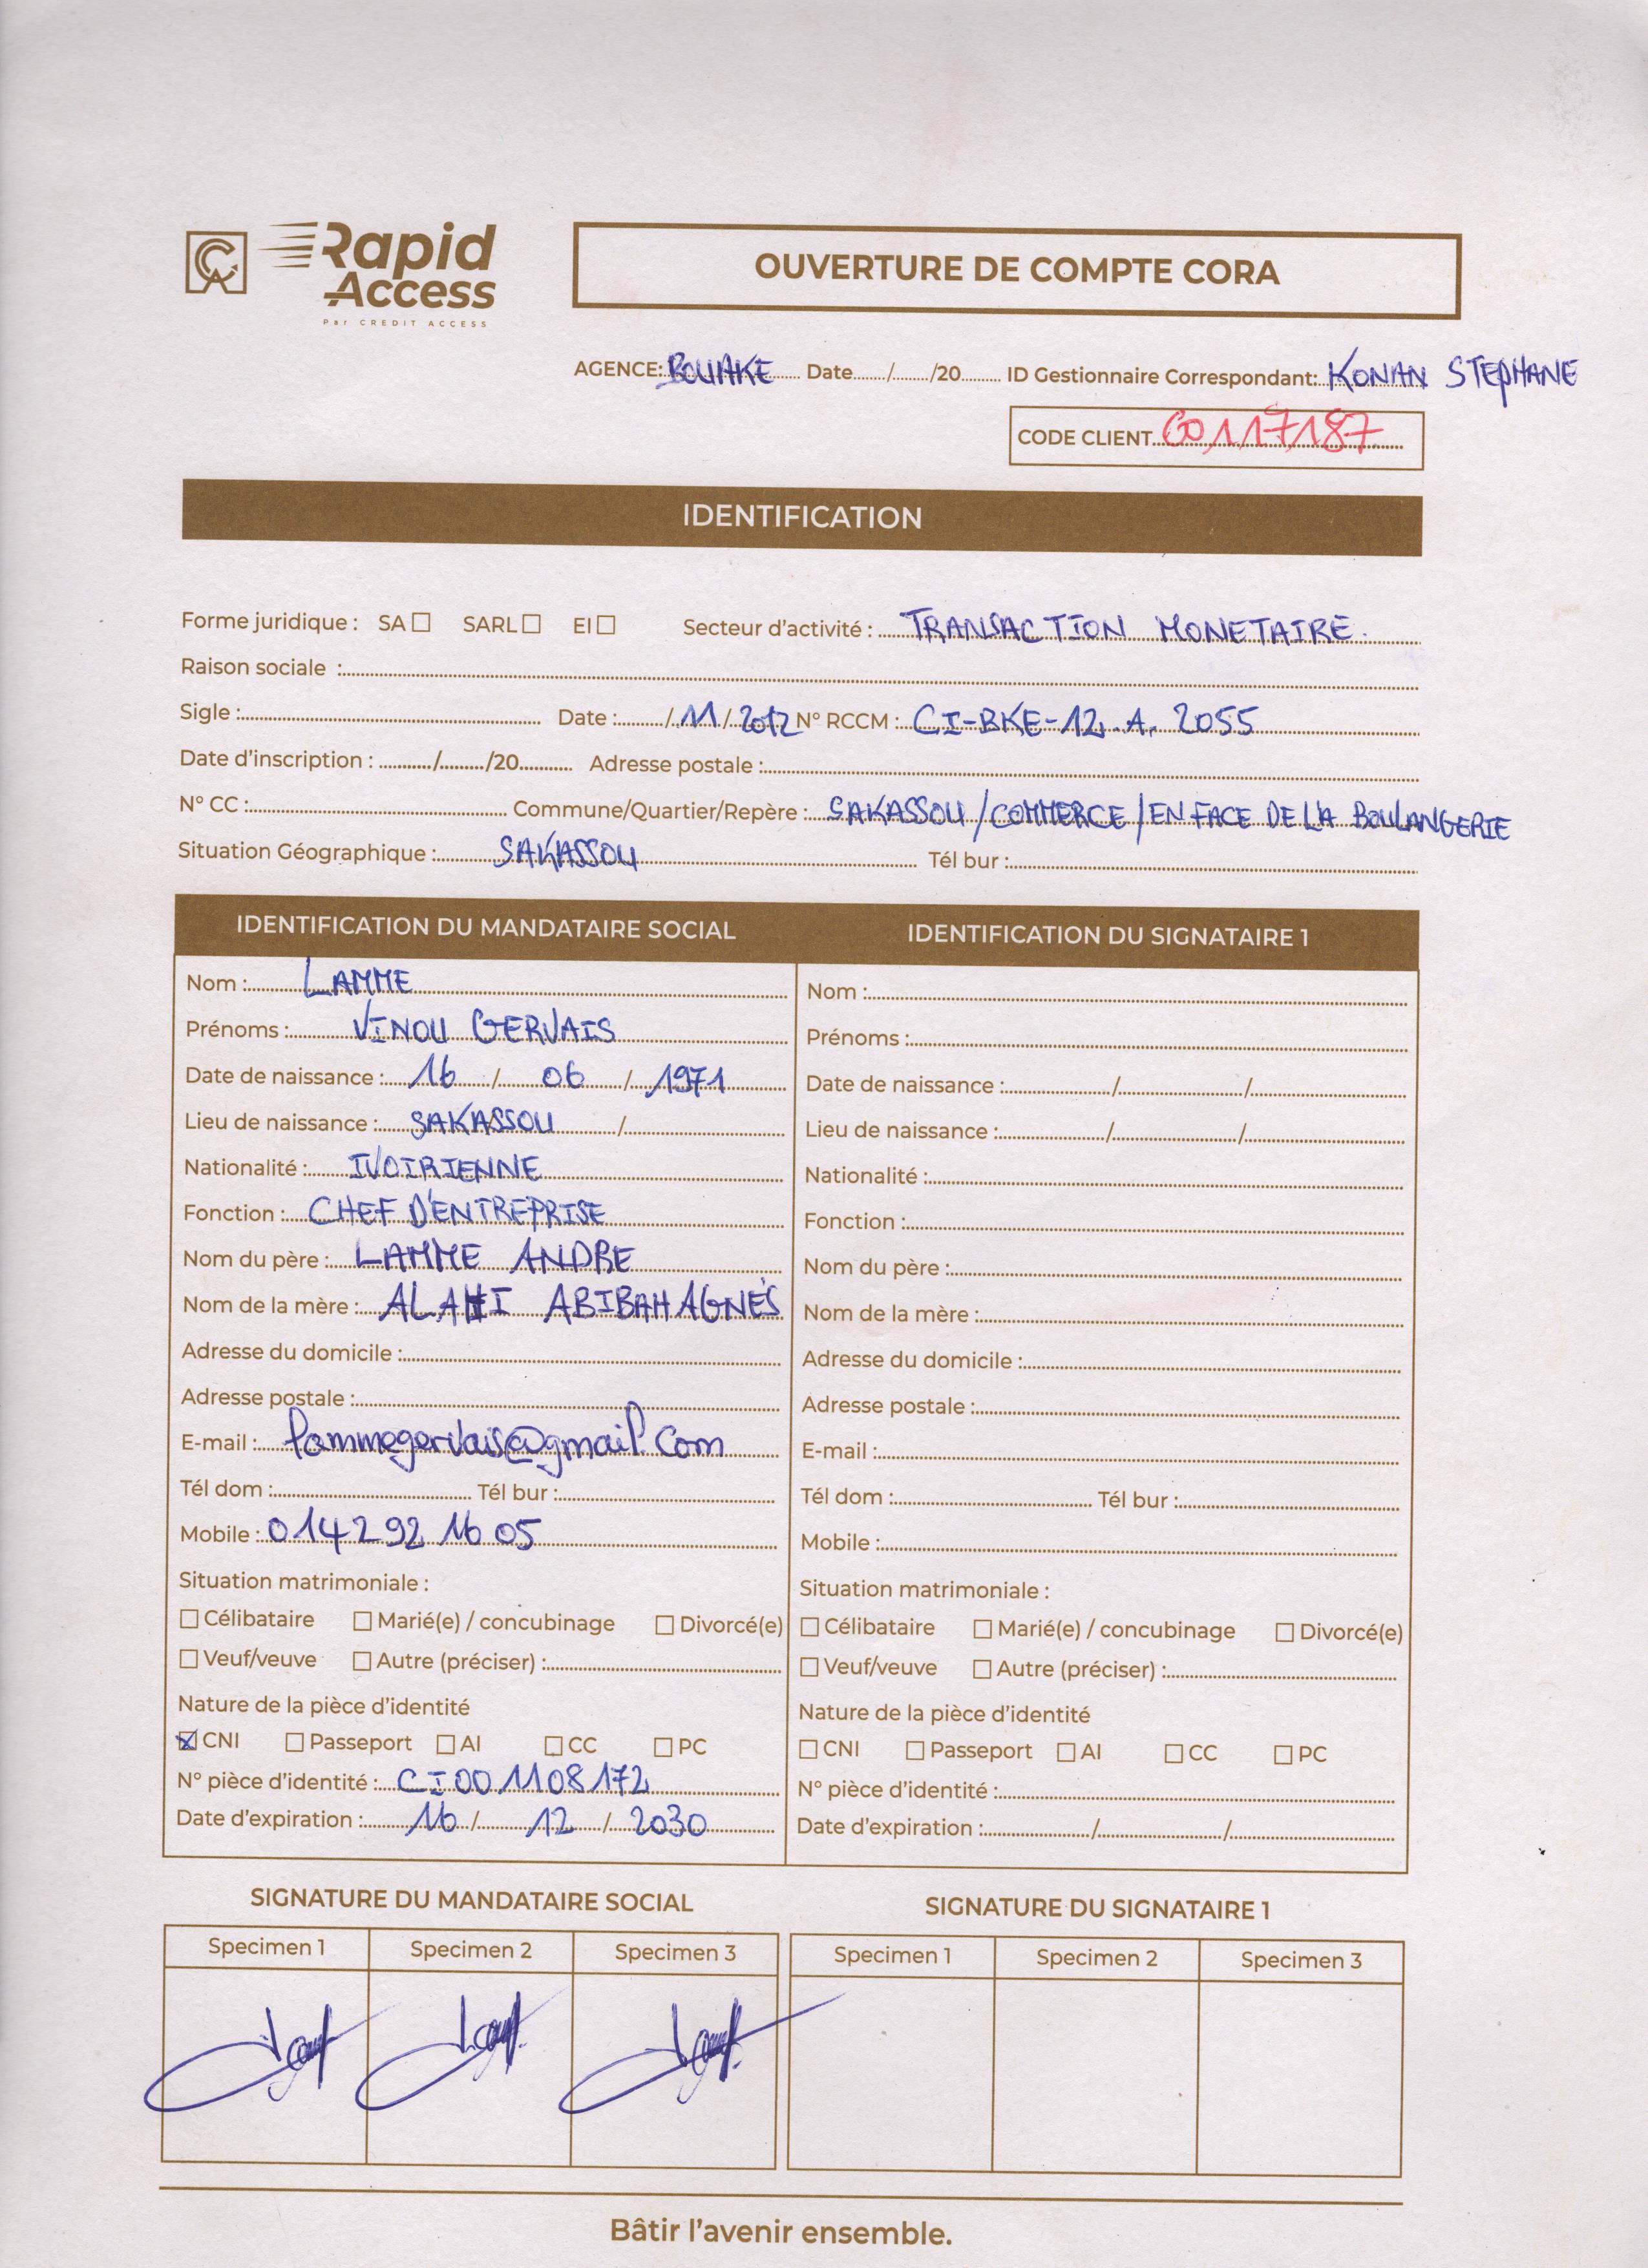 CA Rapid Access
Par CREDIT ACCESS
OUVERTURE DE COMPTE CORA
AGENCE: BOUAKE Date....../....../20...... ID Gestionnaire Correspondant: KONAN STEPHANE
CODE CLIENT 60117187
IDENTIFICATION
Forme juridique : SA ☐ SARL ☐ EI ☐ Secteur d'activité : TRANSACTION MONETAIRE.
Raison sociale :
Sigle : Date : ....../11/2012 N° RCCM : CI-BKE-12.A. 2055
Date d'inscription : ....../....../20...... Adresse postale :
N° CC : Commune/Quartier/Repère : SAKASSOU/COMMERCE/EN FACE DE LA BOULANGERIE
Situation Géographique : SAKASSOU Tél bur :
IDENTIFICATION DU MANDATAIRE SOCIAL
Nom : LAMME
Prénoms : VINOU GERVAIS
Date de naissance : 16 / 06 / 1971
Lieu de naissance : SAKASSOU /
Nationalité : IVOIRIENNE
Fonction : CHEF D'ENTREPRISE
Nom du père : LAMME ANDRE
Nom de la mère : ALAHI ABIBAH AGNÈS
Adresse du domicile :
Adresse postale :
E-mail : lammegervais@gmail.com
Tél dom : Tél bur :
Mobile : 0142921605
Situation matrimoniale :
☐ Célibataire ☐ Marié(e) / concubinage ☐ Divorcé(e)
☐ Veuf/veuve ☐ Autre (préciser) :
Nature de la pièce d'identité
☒ CNI ☐ Passeport ☐ AI ☐ CC ☐ PC
N° pièce d'identité : CI001108172
Date d'expiration : 16 / 12 / 2030
IDENTIFICATION DU SIGNATAIRE 1
Nom :
Prénoms :
Date de naissance : / /
Lieu de naissance : / /
Nationalité :
Fonction :
Nom du père :
Nom de la mère :
Adresse du domicile :
Adresse postale :
E-mail :
Tél dom : Tél bur :
Mobile :
Situation matrimoniale :
☐ Célibataire ☐ Marié(e) / concubinage ☐ Divorcé(e)
☐ Veuf/veuve ☐ Autre (préciser) :
Nature de la pièce d'identité
☐ CNI ☐ Passeport ☐ AI ☐ CC ☐ PC
N° pièce d'identité :
Date d'expiration : / /
SIGNATURE DU MANDATAIRE SOCIAL
Specimen 1 Specimen 2 Specimen 3
SIGNATURE DU SIGNATAIRE 1
Specimen 1 Specimen 2 Specimen 3
Bâtir l'avenir ensemble.